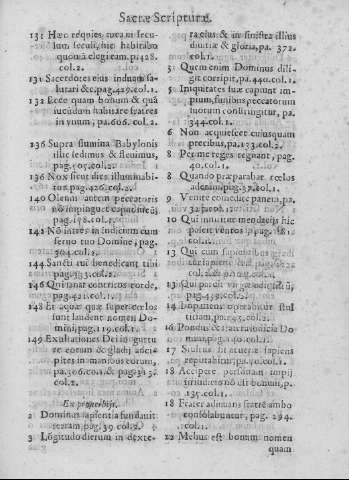 Sacræ Scripturæ.
131 Hæc requies mea in secu-
lum seculi, hic habitabo
quoniā elegi eam. p. 428.
col. 2.
131 Sacerdotes eius induam sa-
lutari &c. pag. 429. col. 1.
132 Ecce quam bonum & quā
iucūdum habitare fratres
in vnum, pa. 606. col. 2.
136 Supra flumina Babylonis
illic sedimus & fleuimus,
col. 2.
136 Nox sicut dies illuminabi-
tur pag. 426. col. 2.
140 Oleum autem peccatoris
nō impinguet caput meū,
col. 1.
142 Nō intres in iudicium cum
seruo tuo Domine, pag.
col. 1.
144 Sancti tui benedicant tibi
pag. col. 2.
146 Qui sanat contritos corde,
pag. 421. col. 1.
148 Et aquæ quæ super cœlos
sunt laudent nomen Do-
mini, pag. 119. col. 1.
149 Exultationes Dei in guttu-
re eorum & gladij anci-
pites in manibus eorum,
pa. 306. col. 1 & pag. 313.
col. 2.
Ex prouerbijs.
2 Dominus sapientia fundauit
terram, pag. 39. col. 2.
3 Lōgitudo dierum in dexte-
ra eius & in sinistra illius
diuitiæ & gloria, pa. 372.
col. 1.
3 Quem enim Dominus dili-
git corripit, pa. 440. col. 1.
5 Iniquitates suæ capiunt im-
pium, funibus peccatorum
suorum constringitur, pa.
344. col. 1.
6 Non acquiescet cuiusquam
precibus, pa. 133. col. 2.
8 Per me reges regnant, pag.
40. col. 1.
8 Quando præparabat cœlos
aderam, pag. 37. col. 1.
9 Venite comedite panem, pa.
10 Qui nititur mendacijs hic
pascit ventos, pag.
col. 1.
13 Qui cum sapientibus gradi-
tur sapiens
13 Qui parcit virgæ odit filiū,
pag. 439. col. 2.
14 Impatiens operabitur stul
titiam, pa. 43. col. 2.
16 Pondus & statera iudicia Do-
mini, pag. 40. col. 1.
17 Stultus si tacuerit sapiens
reputabitur,
18 Accipere personam impij
in iudicio nō est bonum, p.
135. col. 1.
18 Frater adiuuans fratrē ambo
consolabuntur, pag. 294.
col. 1.
22 Melius est bonum nomen
quam